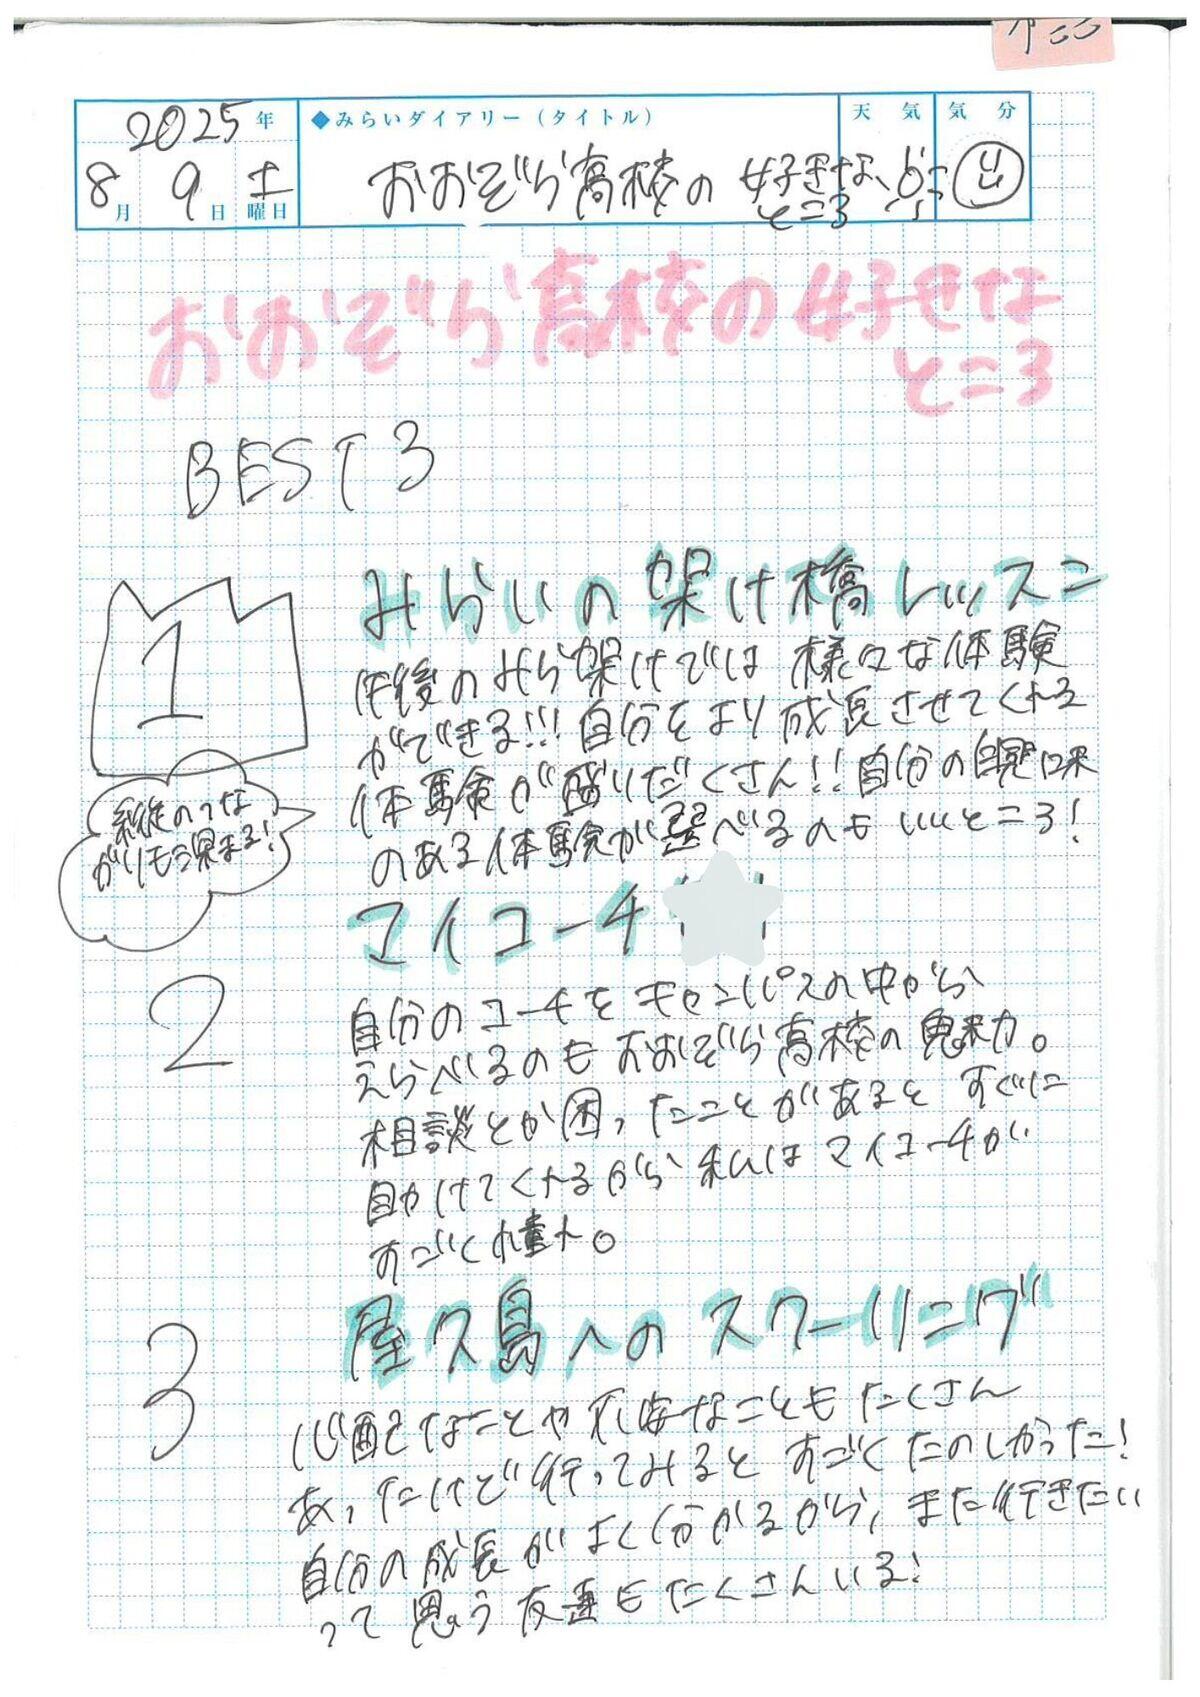 2025年
8月 9日 土曜日
◆みらいダイアリー(タイトル)
おおぞら高校の好きな
ところ
天気
気分
おおぞら高校の好きな
ところ
BEST3
1
みらいの架け橋レッスン
午後のみら架けでは様々な体験
ができる!!!自分をより成長させてくれる
体験が盛りだくさん!!自分の興味
のある体験が選べるのもいいところ!
縦のつな
がりも深まる!
2
マイコーチ
自分のコーチをキャンパスの中から
えらべるのもおおぞら高校の魅力。
相談とか困ったことがあるとすぐに
助けてくれるから私はマイコーチが
すごく憧れ。
3
屋久島へのスクーリング
心配なことや不安なこともたくさん
あったけど行ってみるとすごくたのしかった!
自分の成長がよく分かるから、また行きたい
って思う友達もたくさんいる!